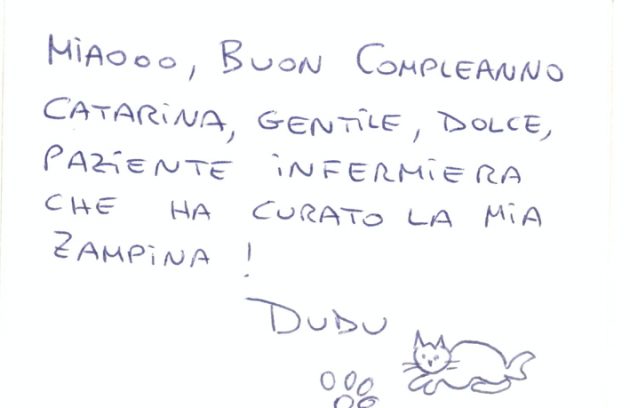 MIAOOO, BUON COMPLEANNO
CATARINA, GENTILE, DOLCE,
PAZIENTE INFERMIERA
CHE HA CURATO LA MIA
ZAMPINA !
DUDU